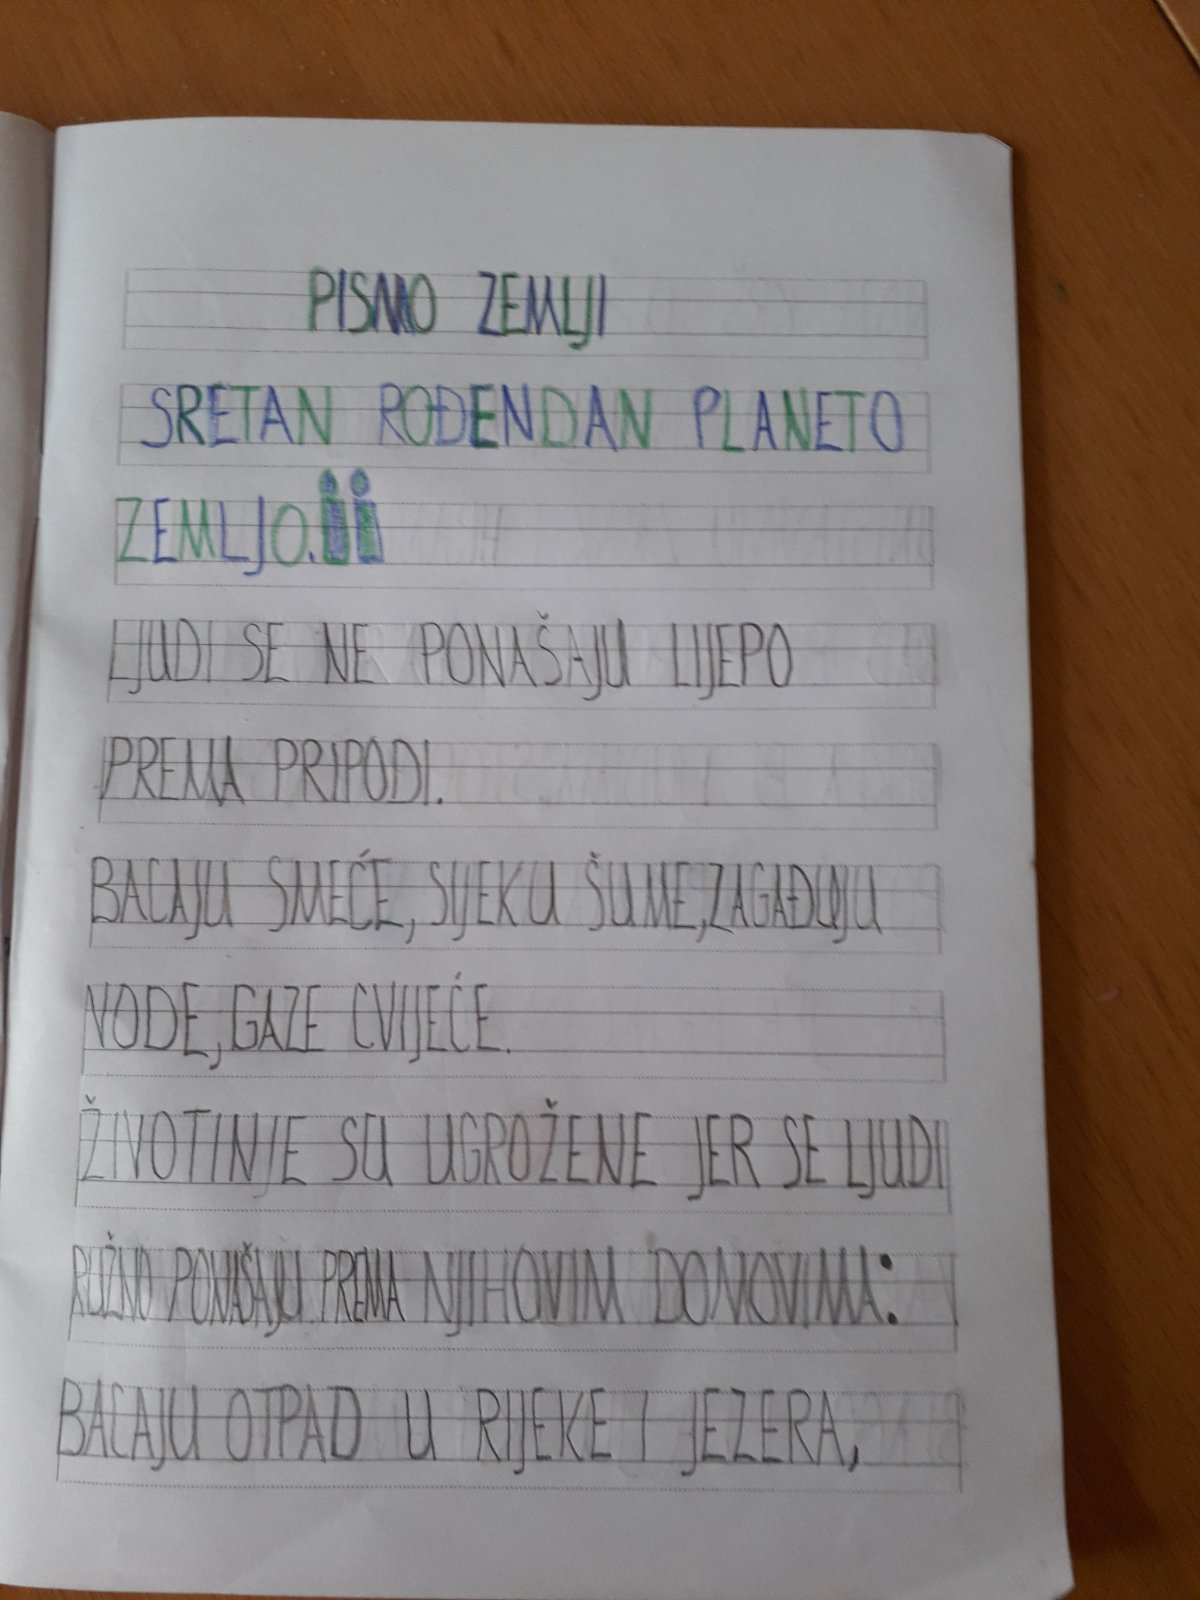 PISMO ZEMLJI
SRETAN ROĐENDAN PLANETO
ZEMLJO.
LJUDI SE NE PONAŠAJU LIJEPO
PREMA PRIPODI.
BACAJU SMEĆE, SIJEKU ŠUME, ZAGAĐUJU
VODE, GAZE CVIJEĆE.
ŽIVOTINJE SU UGROŽENE JER SE LJUDI
RUŽNO PONAŠAJU PREMA NJIHOVIM DOMOVIMA:
BACAJU OTPAD U RIJEKE I JEZERA,